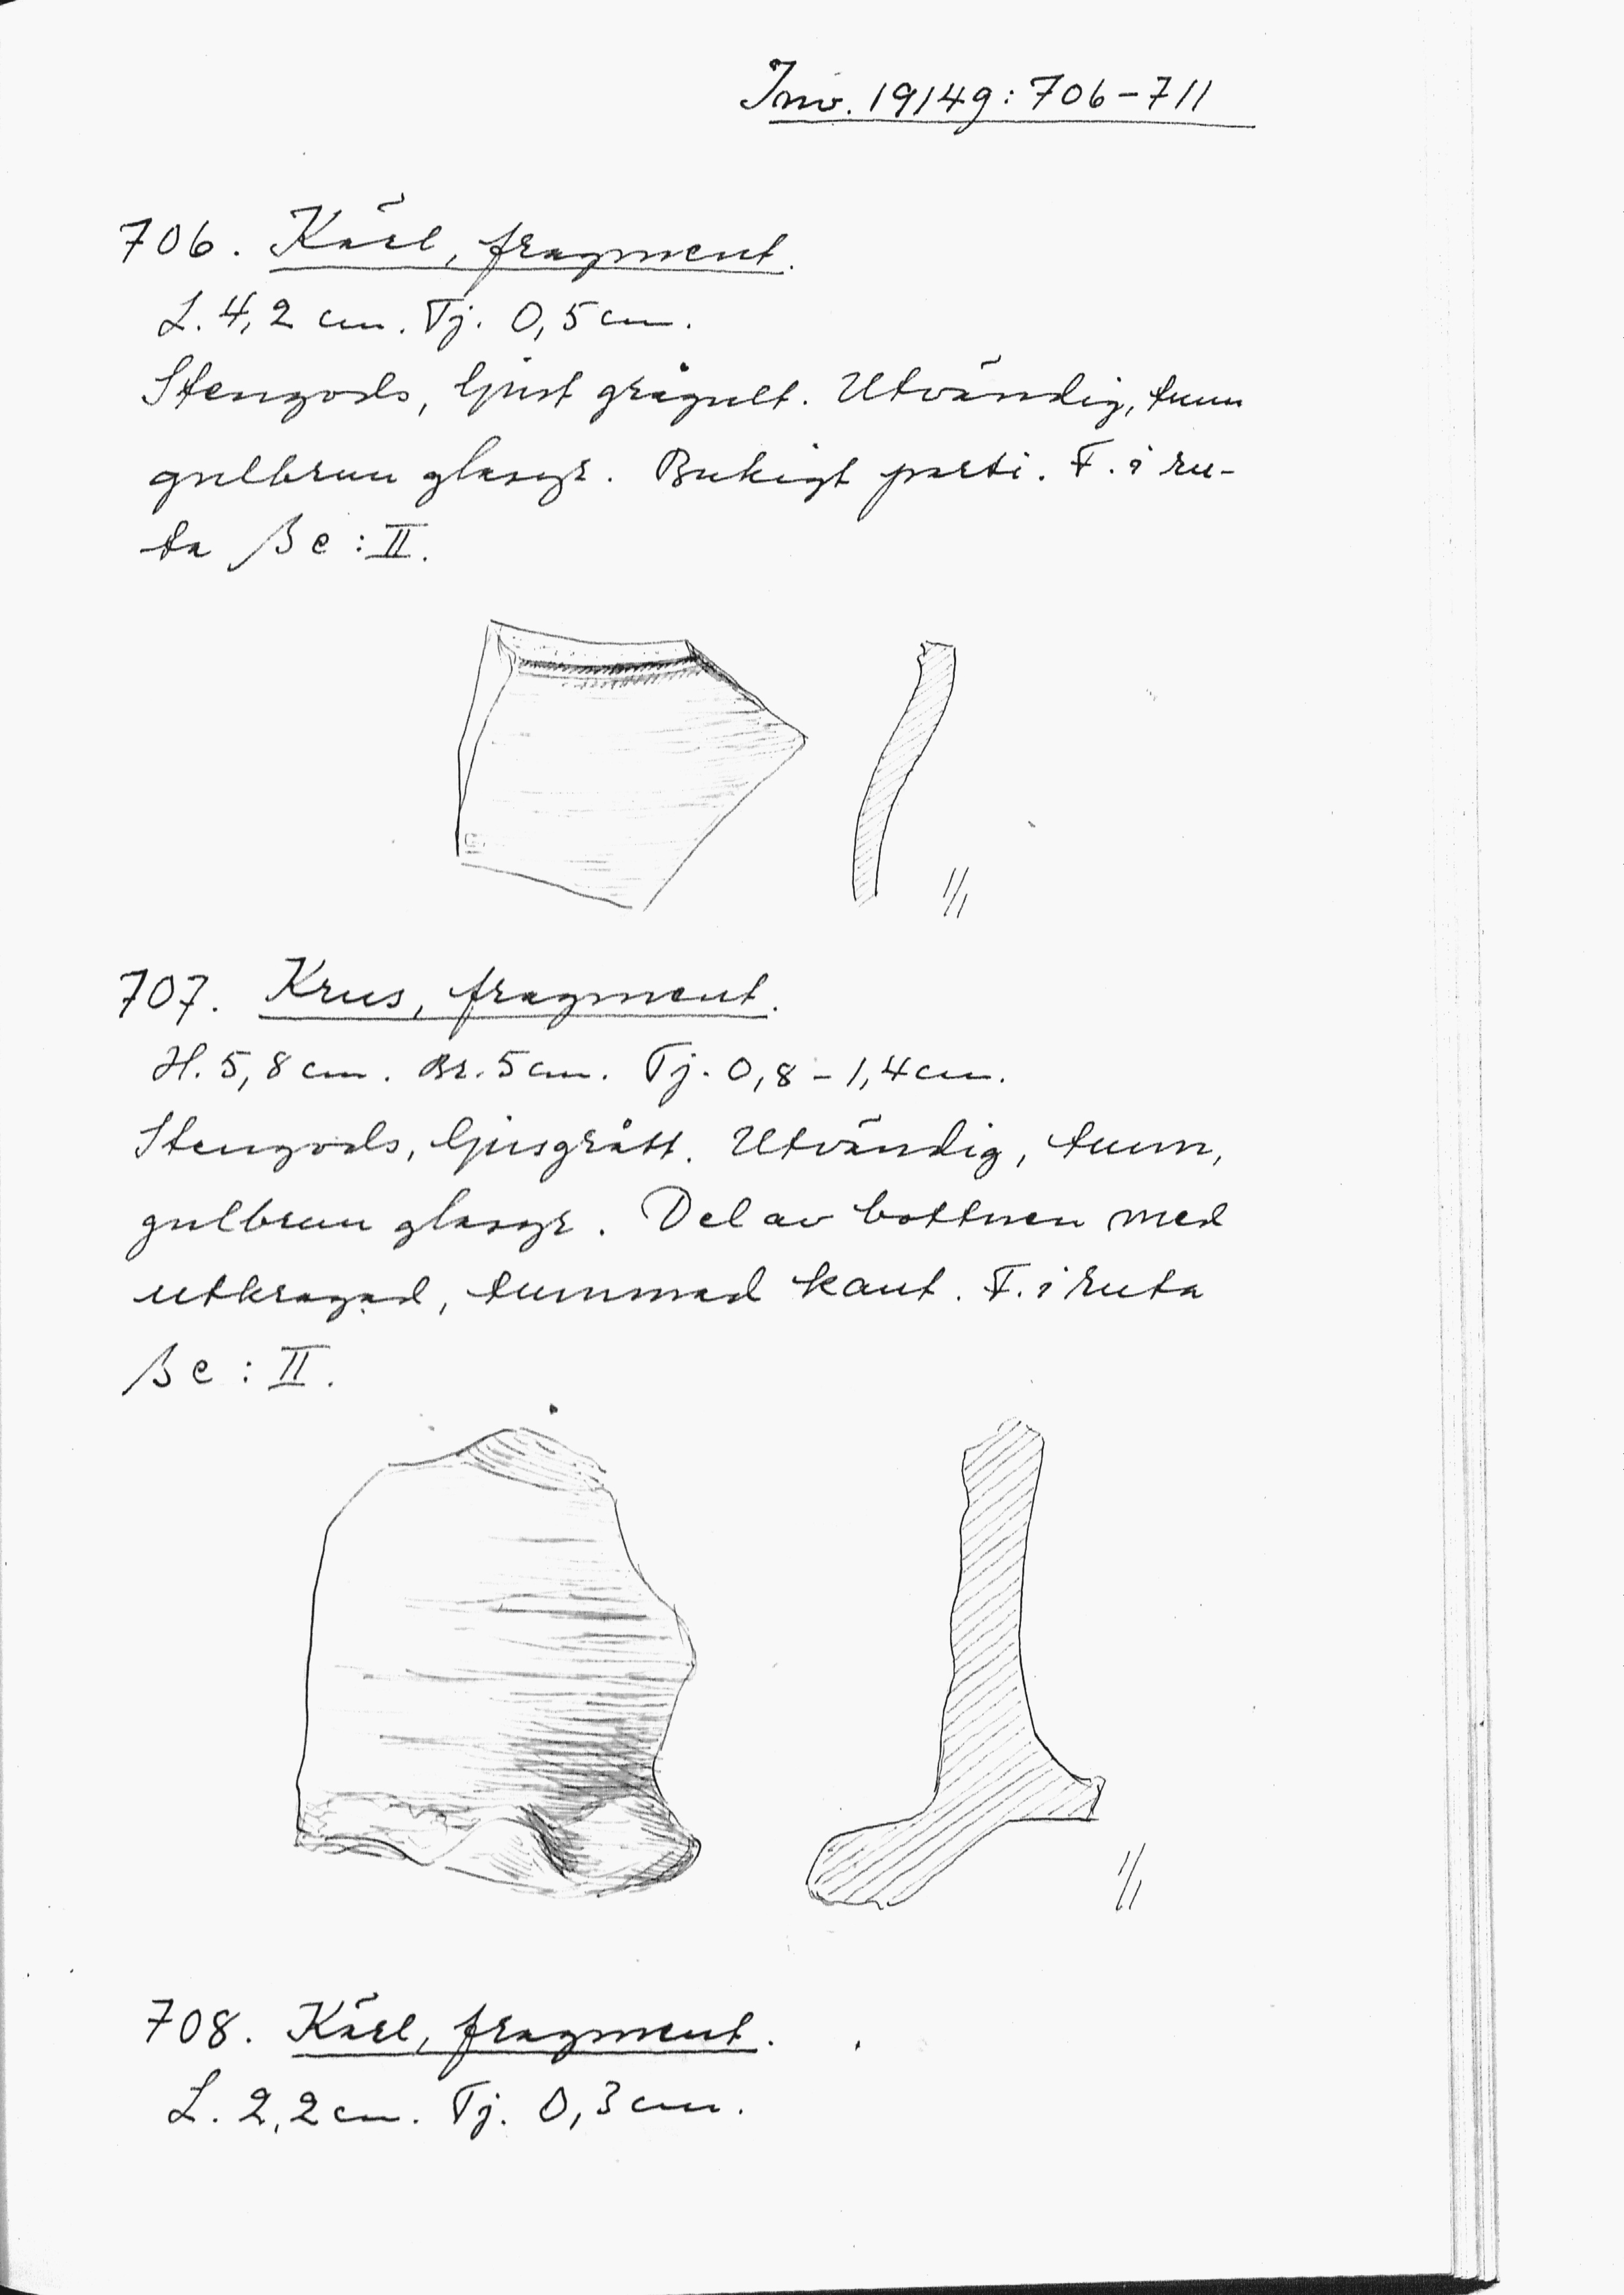 Inv. 19149:706-711
706. Kärl, fragment.
L. 4,2 cm. Tj. 0,5 cm.
Stengods, ljust grågult. Utvändig, tunn
gulbrun glasyr. Bukigt parti. F. i ru-
ta βc:II.
1/1
707. Krus, fragment.
H. 5,8 cm. Br. 5 cm. Tj. 0,8-1,4 cm.
Stengods, ljusgrått. Utvändig, tunn,
gulbrun glasyr. Del av bottnen med
utkragad, tummad kant. F. i ruta
βc:II.
1/1
708. Kärl, fragment.
L. 2,2 cm. Tj. 0,3 cm.